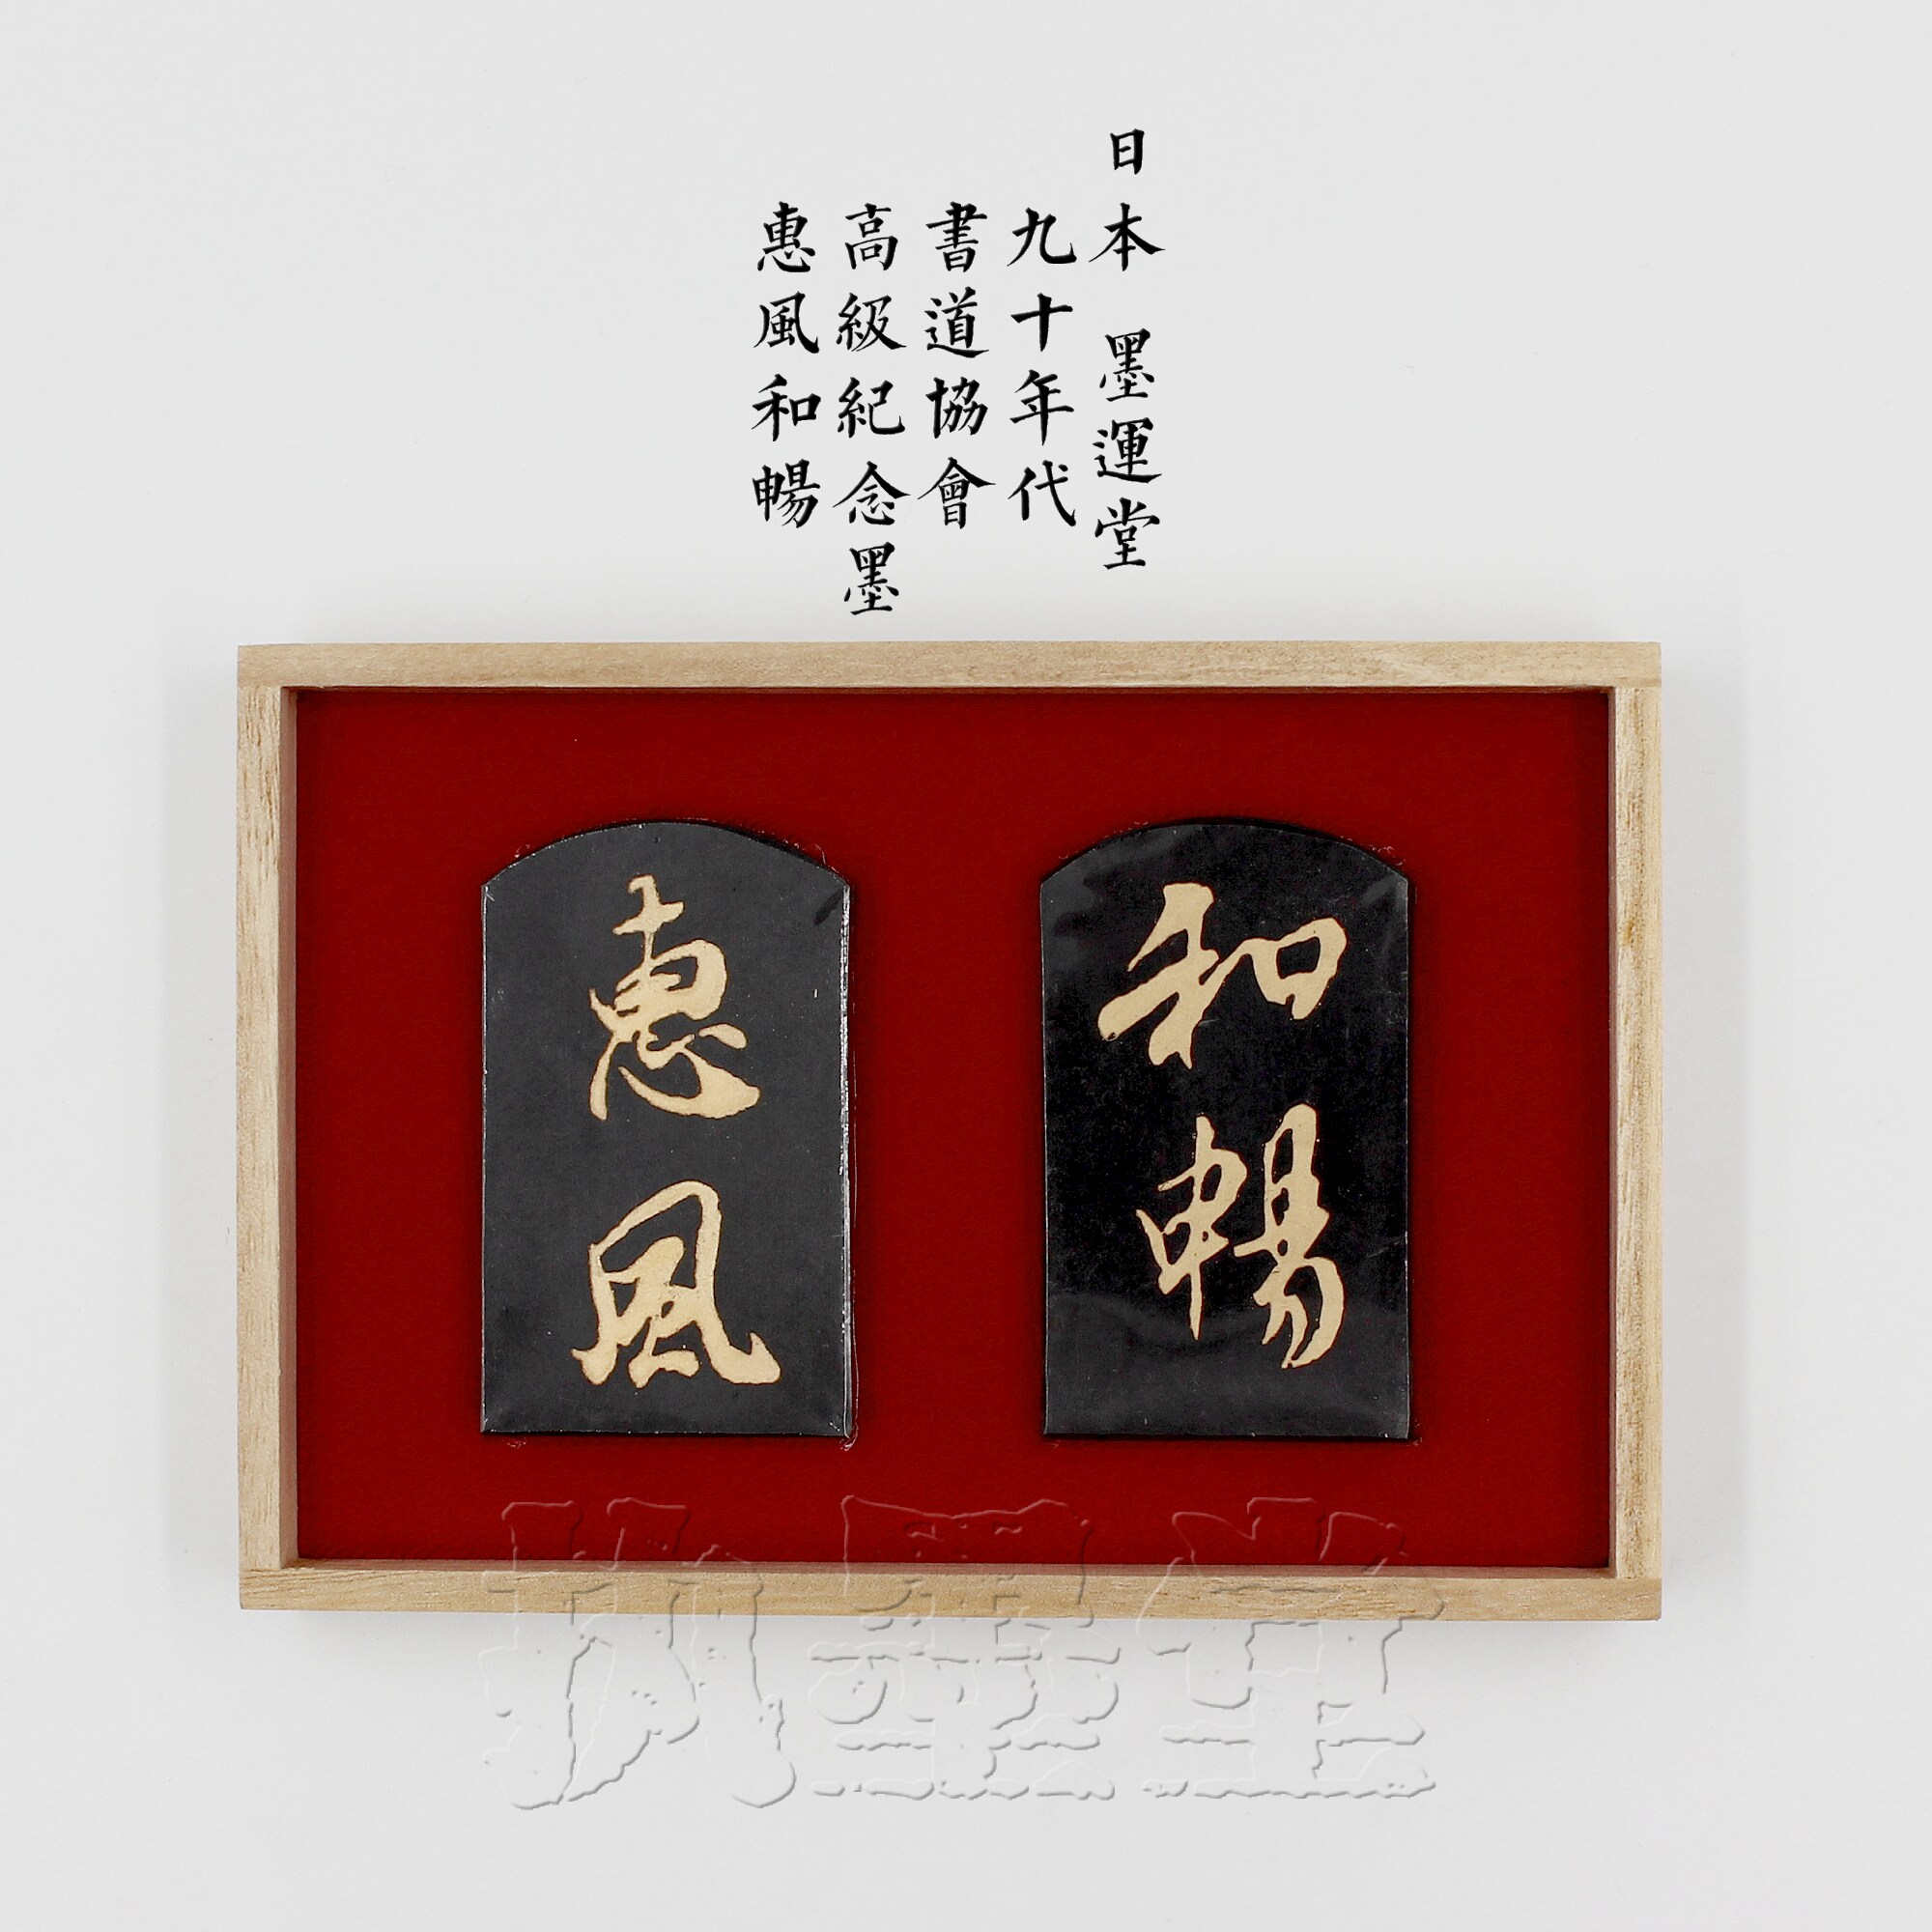 日本 墨運堂
九十年代
書道協會
高級紀念墨
惠風和暢
惠風
和暢